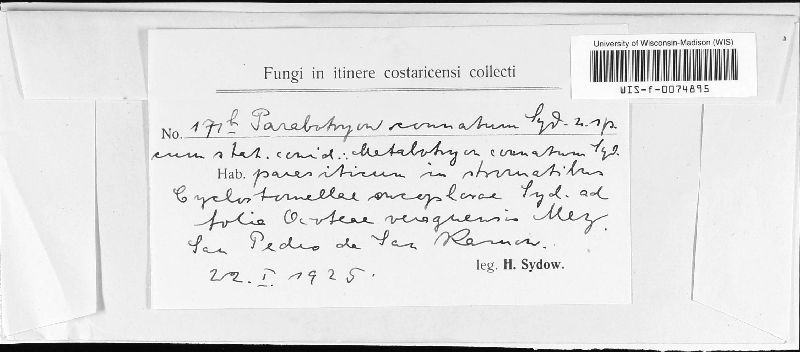 University of Wisconsin-Madison (WIS)
WIS-f-0074895
Fungi in itinere costaricensi collecti
No. 171b Parabotryon connatum Syd. n. sp.
cum stat. conid.: Metabotryon connatum Syd.
Hab. parasiticum in stromatibus
Cyclostomellae oncophorae Syd. ad
folia Ocoteae veraguensis Mez.
San Pedro de San Ramon.
22. I. 1925.
leg. H. Sydow.